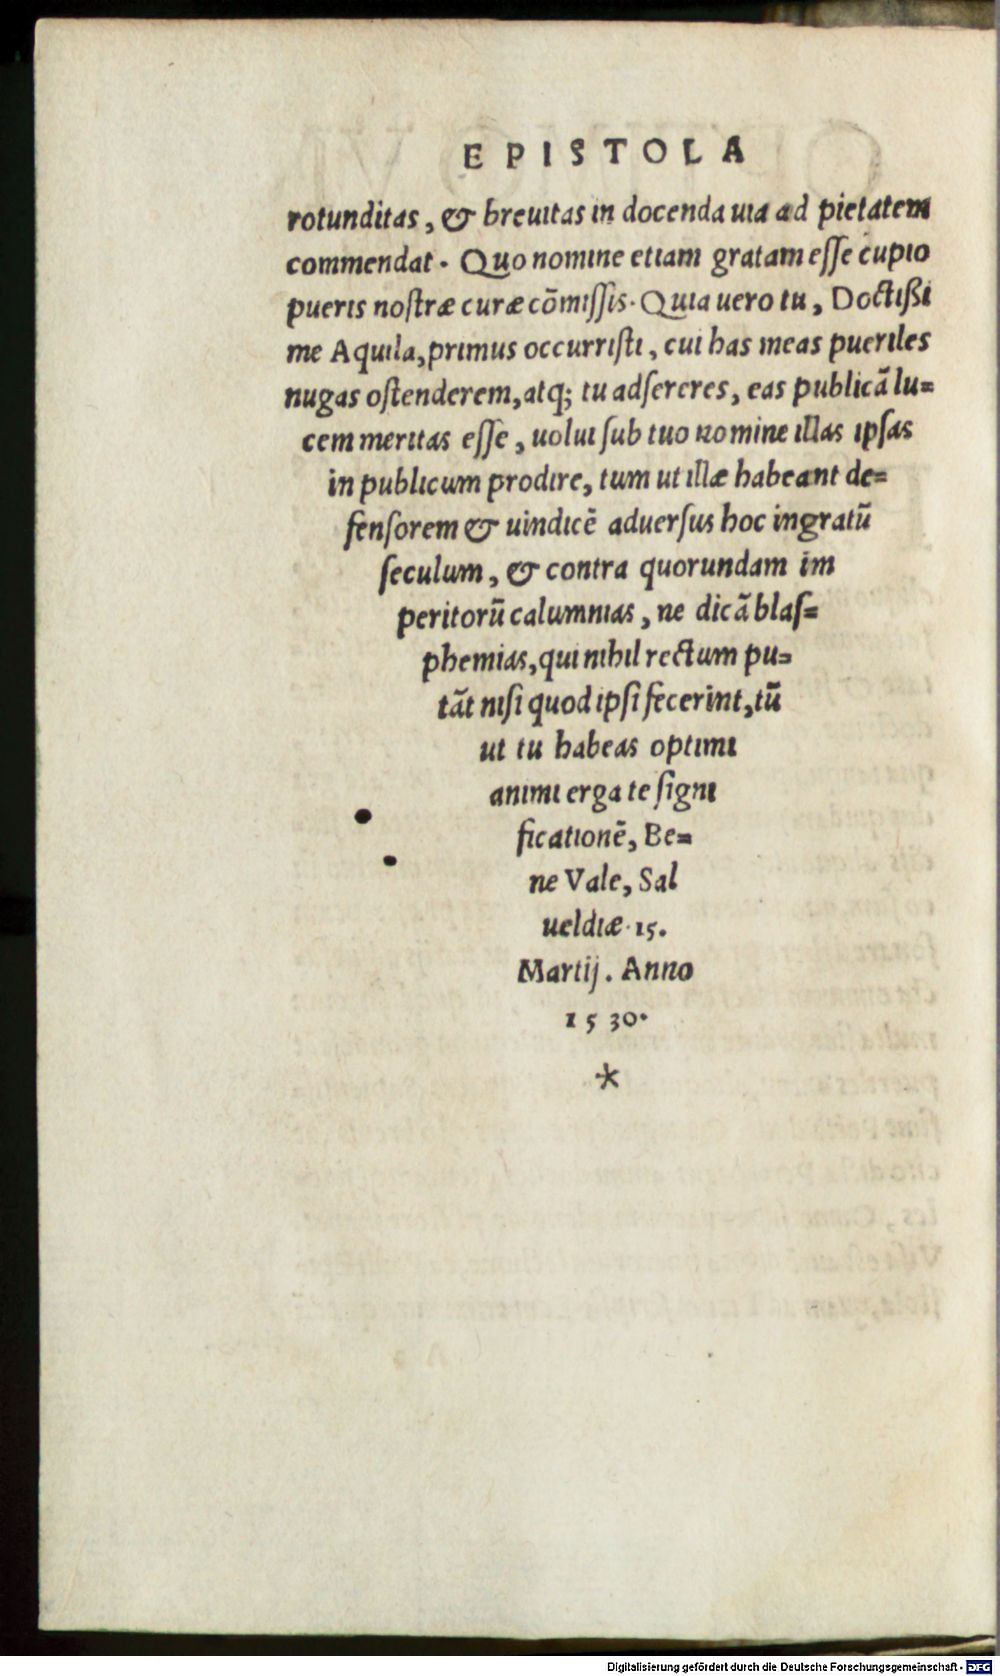 EPISTOLA
rotunditas, & breuitas in docenda uia ad pietatem
commendat. Quo nomine etiam gratam eſſe cupio
pueris noſtræ curæ cõmiſſis. Quia uero tu, Doctißi
me Aquila, primus occurriſti, cui has meas pueriles
nugas oſtenderem, atq; tu adſereres, eas publicã lu=
cem meritas eſſe, uolui ſub tuo nomine illas ipſas
in publicum prodire, tum ut illæ habeant de=
fenſorem & uindicẽ aduerſus hoc ingratũ
ſeculum, & contra quorundam im
peritorũ calumnias, ne dicã blaſ=
phemias, qui nihil rectum pu=
tãt niſi quod ipſi fecerint, tũ
ut tu habeas optimi
animi erga te ſigni
ficationẽ, Be=
ne Vale, Sal
ueldiæ. 15.
Martij. Anno
1530.
*
Digitalisierung gefördert durch die Deutsche Forschungsgemeinschaft - DFG